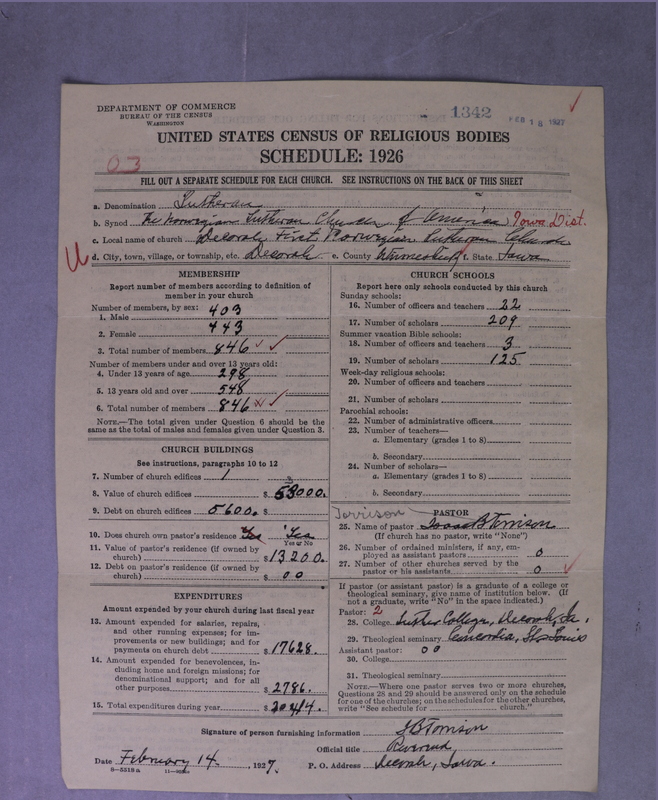 DEPARTMENT OF COMMERCE
BUREAU OF THE CENSUS
WASHINGTON
1342
FEB 18 1927
UNITED STATES CENSUS OF RELIGIOUS BODIES
SCHEDULE: 1926
03
FILL OUT A SEPARATE SCHEDULE FOR EACH CHURCH. SEE INSTRUCTIONS ON THE BACK OF THIS SHEET
a. Denomination Lutheran
b. Synod The Norwegian Lutheran Church of America Iowa Dist.
c. Local name of church Decorah First Norwegian Lutheran Church
d. City, town, village, or township, etc. Decorah e. County Winneshiek f. State Iowa
MEMBERSHIP
Report number of members according to definition of
member in your church
Number of members, by sex:
1. Male 403
2. Female 443
3. Total number of members 846
Number of members under and over 13 years old:
4. Under 13 years of age 298
5. 13 years old and over 548
6. Total number of members 846
NOTE.—The total given under Question 6 should be the
same as the total of males and females given under Question 3.
CHURCH BUILDINGS
See instructions, paragraphs 10 to 12
7. Number of church edifices 1
8. Value of church edifices $ 53000.
9. Debt on church edifices 5600. $
10. Does church own pastor's residence Yes Yes
Yes or No
11. Value of pastor's residence (if owned by
church) $ 13200.
12. Debt on pastor's residence (if owned by
church) $ 00
EXPENDITURES
Amount expended by your church during last fiscal year
13. Amount expended for salaries, repairs,
and other running expenses; for im-
provements or new buildings; and for
payments on church debt $ 17628.
14. Amount expended for benevolences, in-
cluding home and foreign missions; for
denominational support; and for all
other purposes $ 2786.
15. Total expenditures during year $ 20414.
CHURCH SCHOOLS
Report here only schools conducted by this church
Sunday schools:
16. Number of officers and teachers 22
17. Number of scholars 209
Summer vacation Bible schools:
18. Number of officers and teachers 3
19. Number of scholars 125
Week-day religious schools:
20. Number of officers and teachers
21. Number of scholars
Parochial schools:
22. Number of administrative officers
23. Number of teachers—
a. Elementary (grades 1 to 8)
b. Secondary
24. Number of scholars—
a. Elementary (grades 1 to 8)
b. Secondary
PASTOR
25. Name of pastor Isaac B Torrison
(If church has no pastor, write "None")
26. Number of ordained ministers, if any, em-
ployed as assistant pastors 0
27. Number of other churches served by the
pastor or his assistants 0
If pastor (or assistant pastor) is a graduate of a college or
theological seminary, give name of institution below. (If
not a graduate, write "No" in the space indicated.)
Pastor: 2
28. College Luther College, Decorah, Ia.
29. Theological seminary Concordia, St Louis
Assistant pastor: 00
30. College
31. Theological seminary
NOTE.—Where one pastor serves two or more churches,
Questions 28 and 29 should be answered only on the schedule
for one of the churches; on the schedules for the other churches,
write "See schedule for church."
Signature of person furnishing information I B Torrison
Official title Reverend
Date February 14, 1927. P. O. Address Decorah, Iowa.
8-5518a